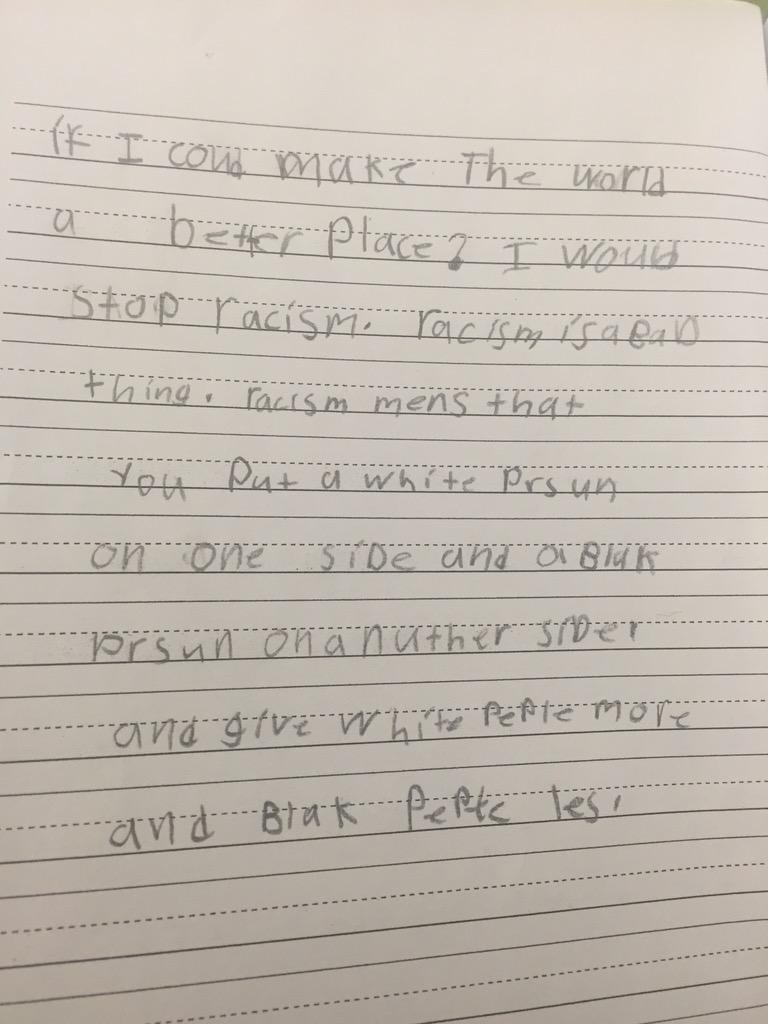 If I coud make The world
a better place? I woud
stop racism. racism is a BaD
thing. racism mens that
You put a white prsun
on one siDe and a Blak
prsun on anuther siDer
and give white PePle more
and Blak PePle les.